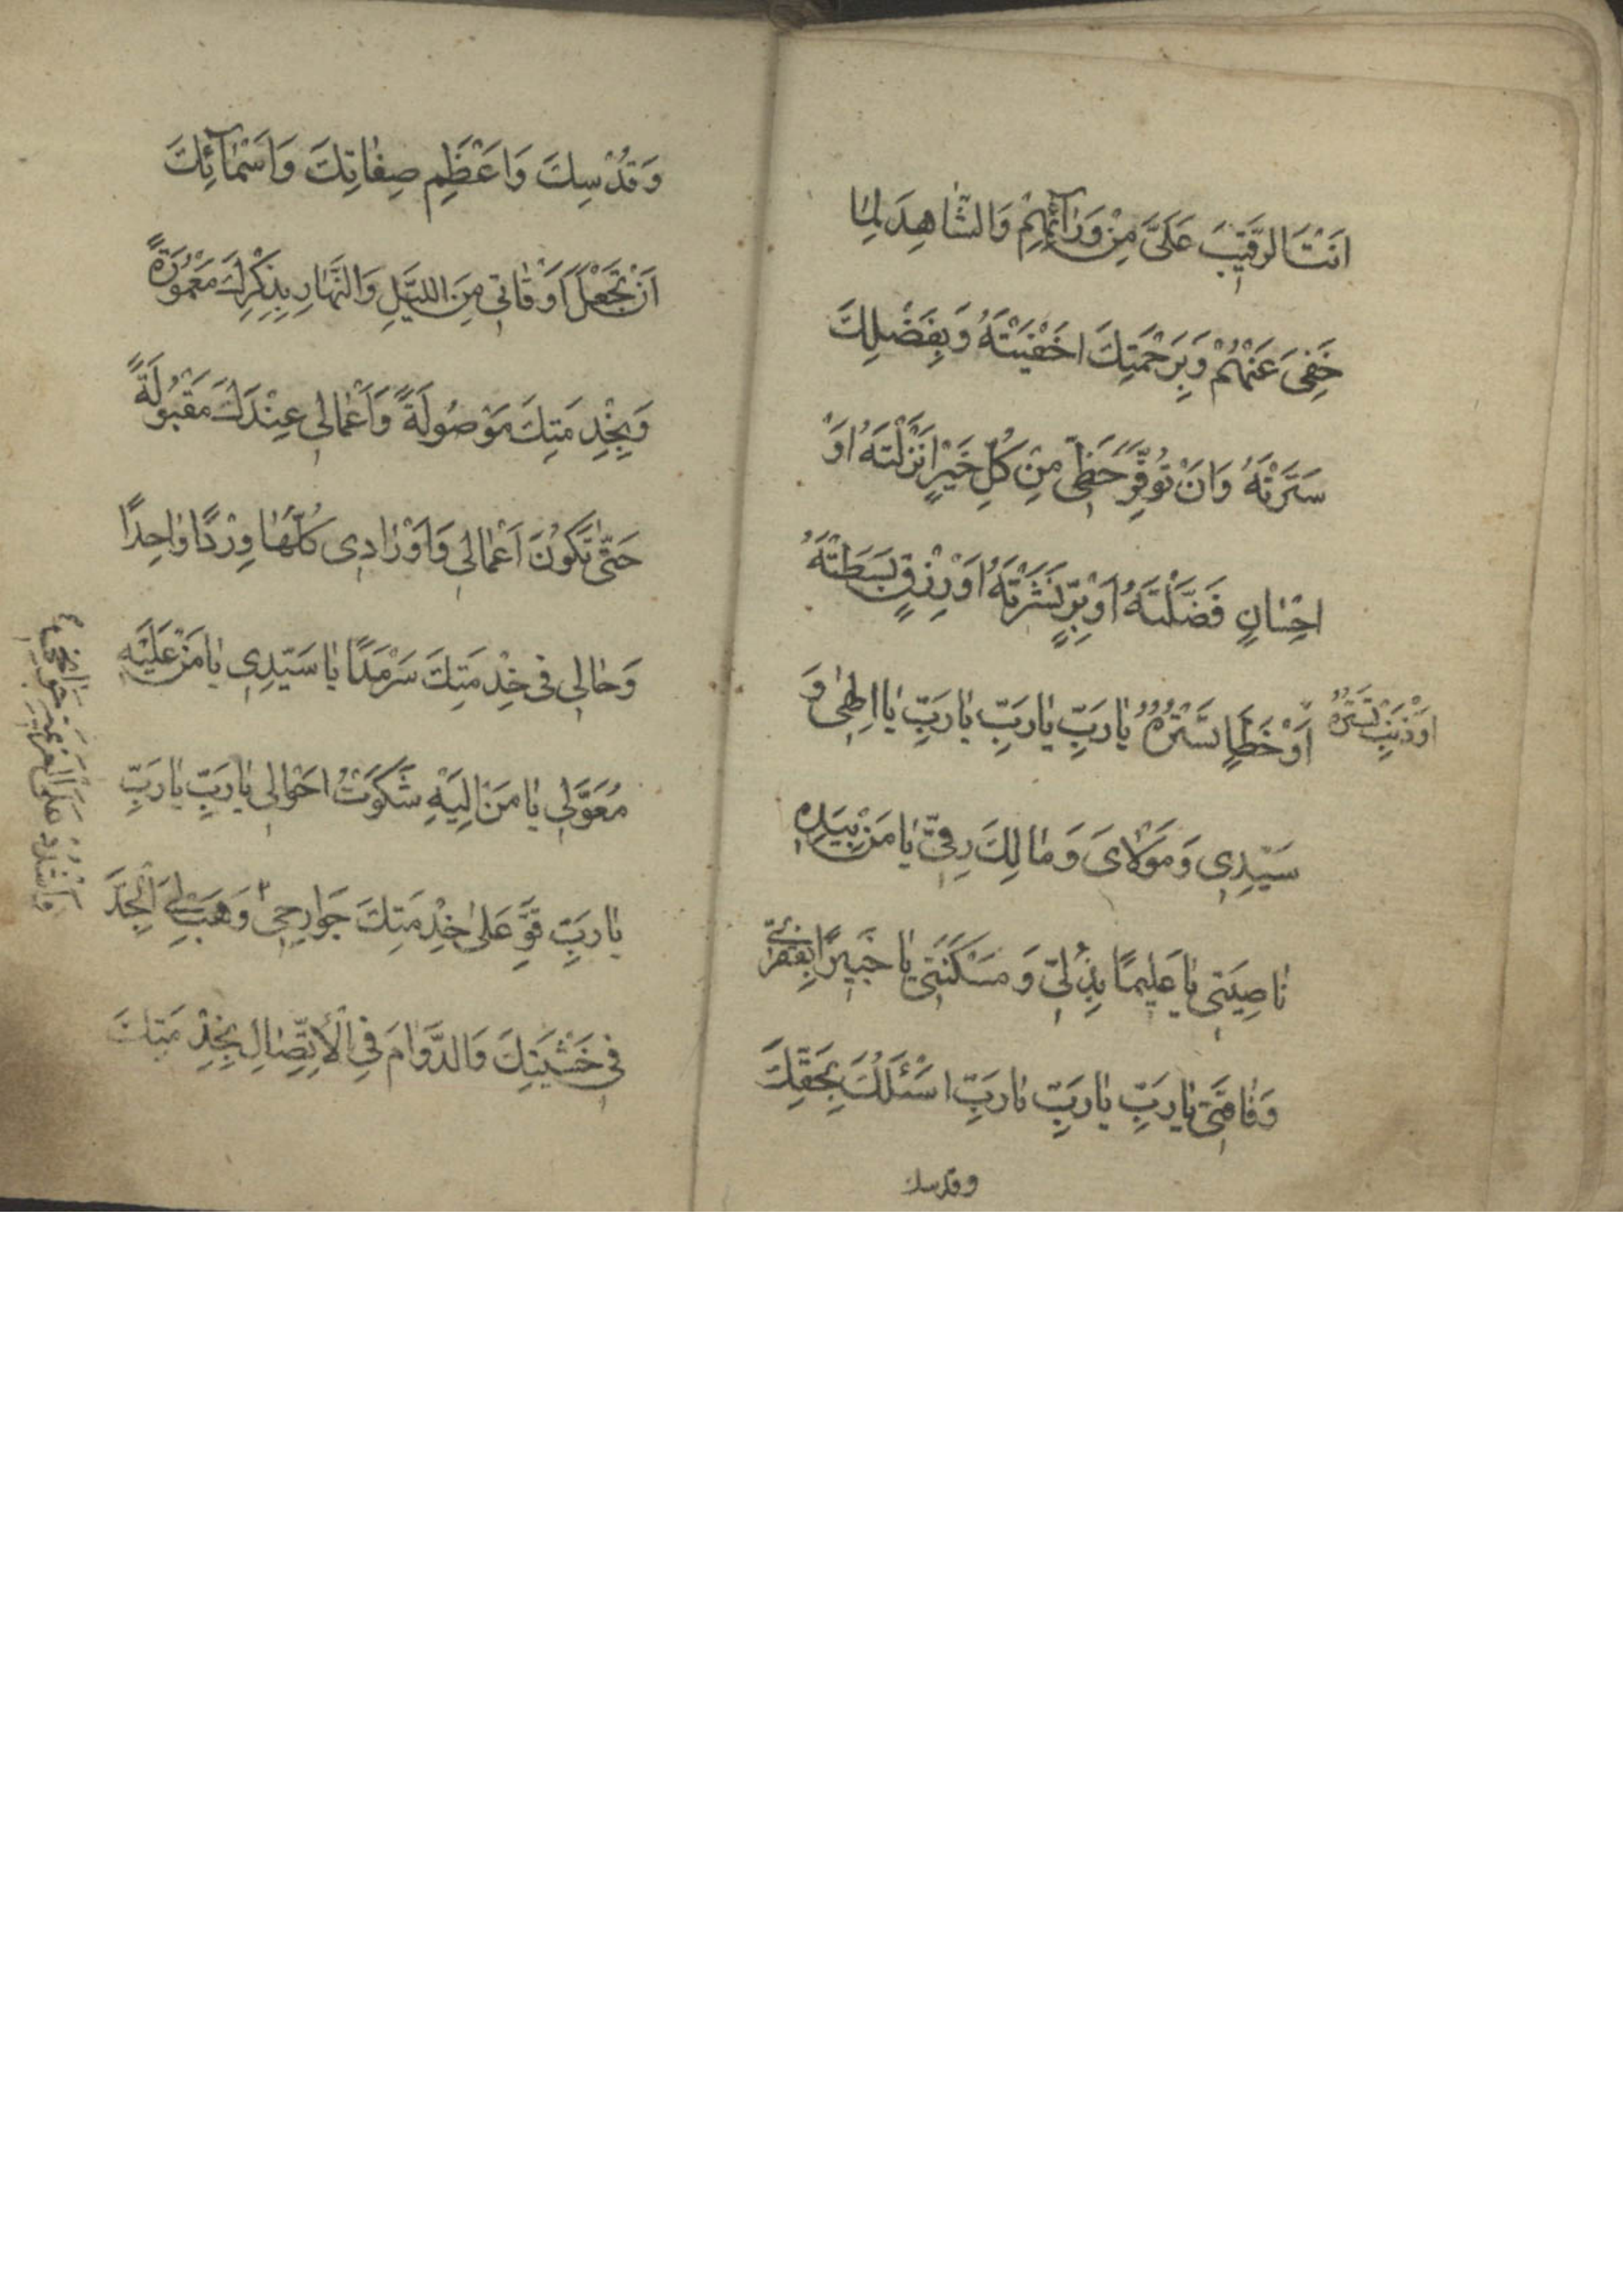 اَنْتَ الرَّقيٖبَ عَلَىَّ مِنْ وَرٰٓائِهِمْ وَالشّٰاهِدَ لِمٰا
خَفِىَ عَنْهُمْ وَبِرَحْمَتِكَ اَخْفَيْتَهُ وَبِفَضْلِكَ
سَتَرْتَهُ وَاَنْ تُوَفِّرَ حَظّٖى مِنْ كُلِّ خَيْرٍ اَنْزَلْتَهُ اَوْ
اِحْسٰانٍ فَضَّلْتَهُ اَوْ بِرٍّ نَشَرْتَهُ اَوْ رِزْقٍ بَسَطْتَهُ
اَوْ ذَنْبٍ تَسْتَرُهُ
اَوْ خَطَإٍ تَسْتُرُهُ يٰا رَبِّ يٰا رَبِّ يٰا رَبِّ يٰا اِلٰهٖى وَ
سَيِّدٖى وَمَوْلاٰىَ وَمٰالِكَ رِقّٖى يٰا مَنْ بِيَدِهٖ
نٰاصِيَتٖى يٰا عَلٖيمًا بِذُلّٖى وَمَسْكَنَتٖى يٰا خَبٖيرًا بِفَقْرٖى
وَفٰاقَتٖى يٰا رَبِّ يٰا رَبِّ يٰا رَبِّ اَسْئَلُكَ بِحَقِّكَ
وقدسك
وَقُدْسِكَ وَاَعْظَمِ صِفٰاتِكَ وَاَسْمٰٓائِكَ
اَنْ تَجْعَلَ اَوْقٰاتٖى مِنَ اللَّيْلِ وَالنَّهٰارِ بِذِكْرِكَ مَعْمُورَةً
وَبِخِدْمَتِكَ مَوْصُولَةً وَاَعْمٰالٖى عِنْدَكَ مَقْبُولَةً
حَتّٰى تَكُونَ اَعْمٰالٖى وَاَوْرٰادٖى كُلُّهٰا وِرْدًا وٰاحِدًا
وَحٰالٖى فٖى خِدْمَتِكَ سَرْمَدًا يٰا سَيِّدٖى يٰا مَنْ عَلَيْهِ
مُعَوَّلٖى يٰا مَنْ اِلَيْهِ شَكَوْتُ اَحْوٰالٖى يٰا رَبِّ يٰا رَبِّ
يٰا رَبِّ قَوِّ عَلٰى خِدْمَتِكَ جَوٰارِحٖى وَهَبْ لِىَ الْجِدَّ
فٖى خَشْيَتِكَ وَالدَّوٰامَ فِى الْاِتِّصٰالِ بِخِدْمَتِكَ
وَاشْدُدْ عَلَى الْعَزٖيمَةِ جَوٰانِحٖى